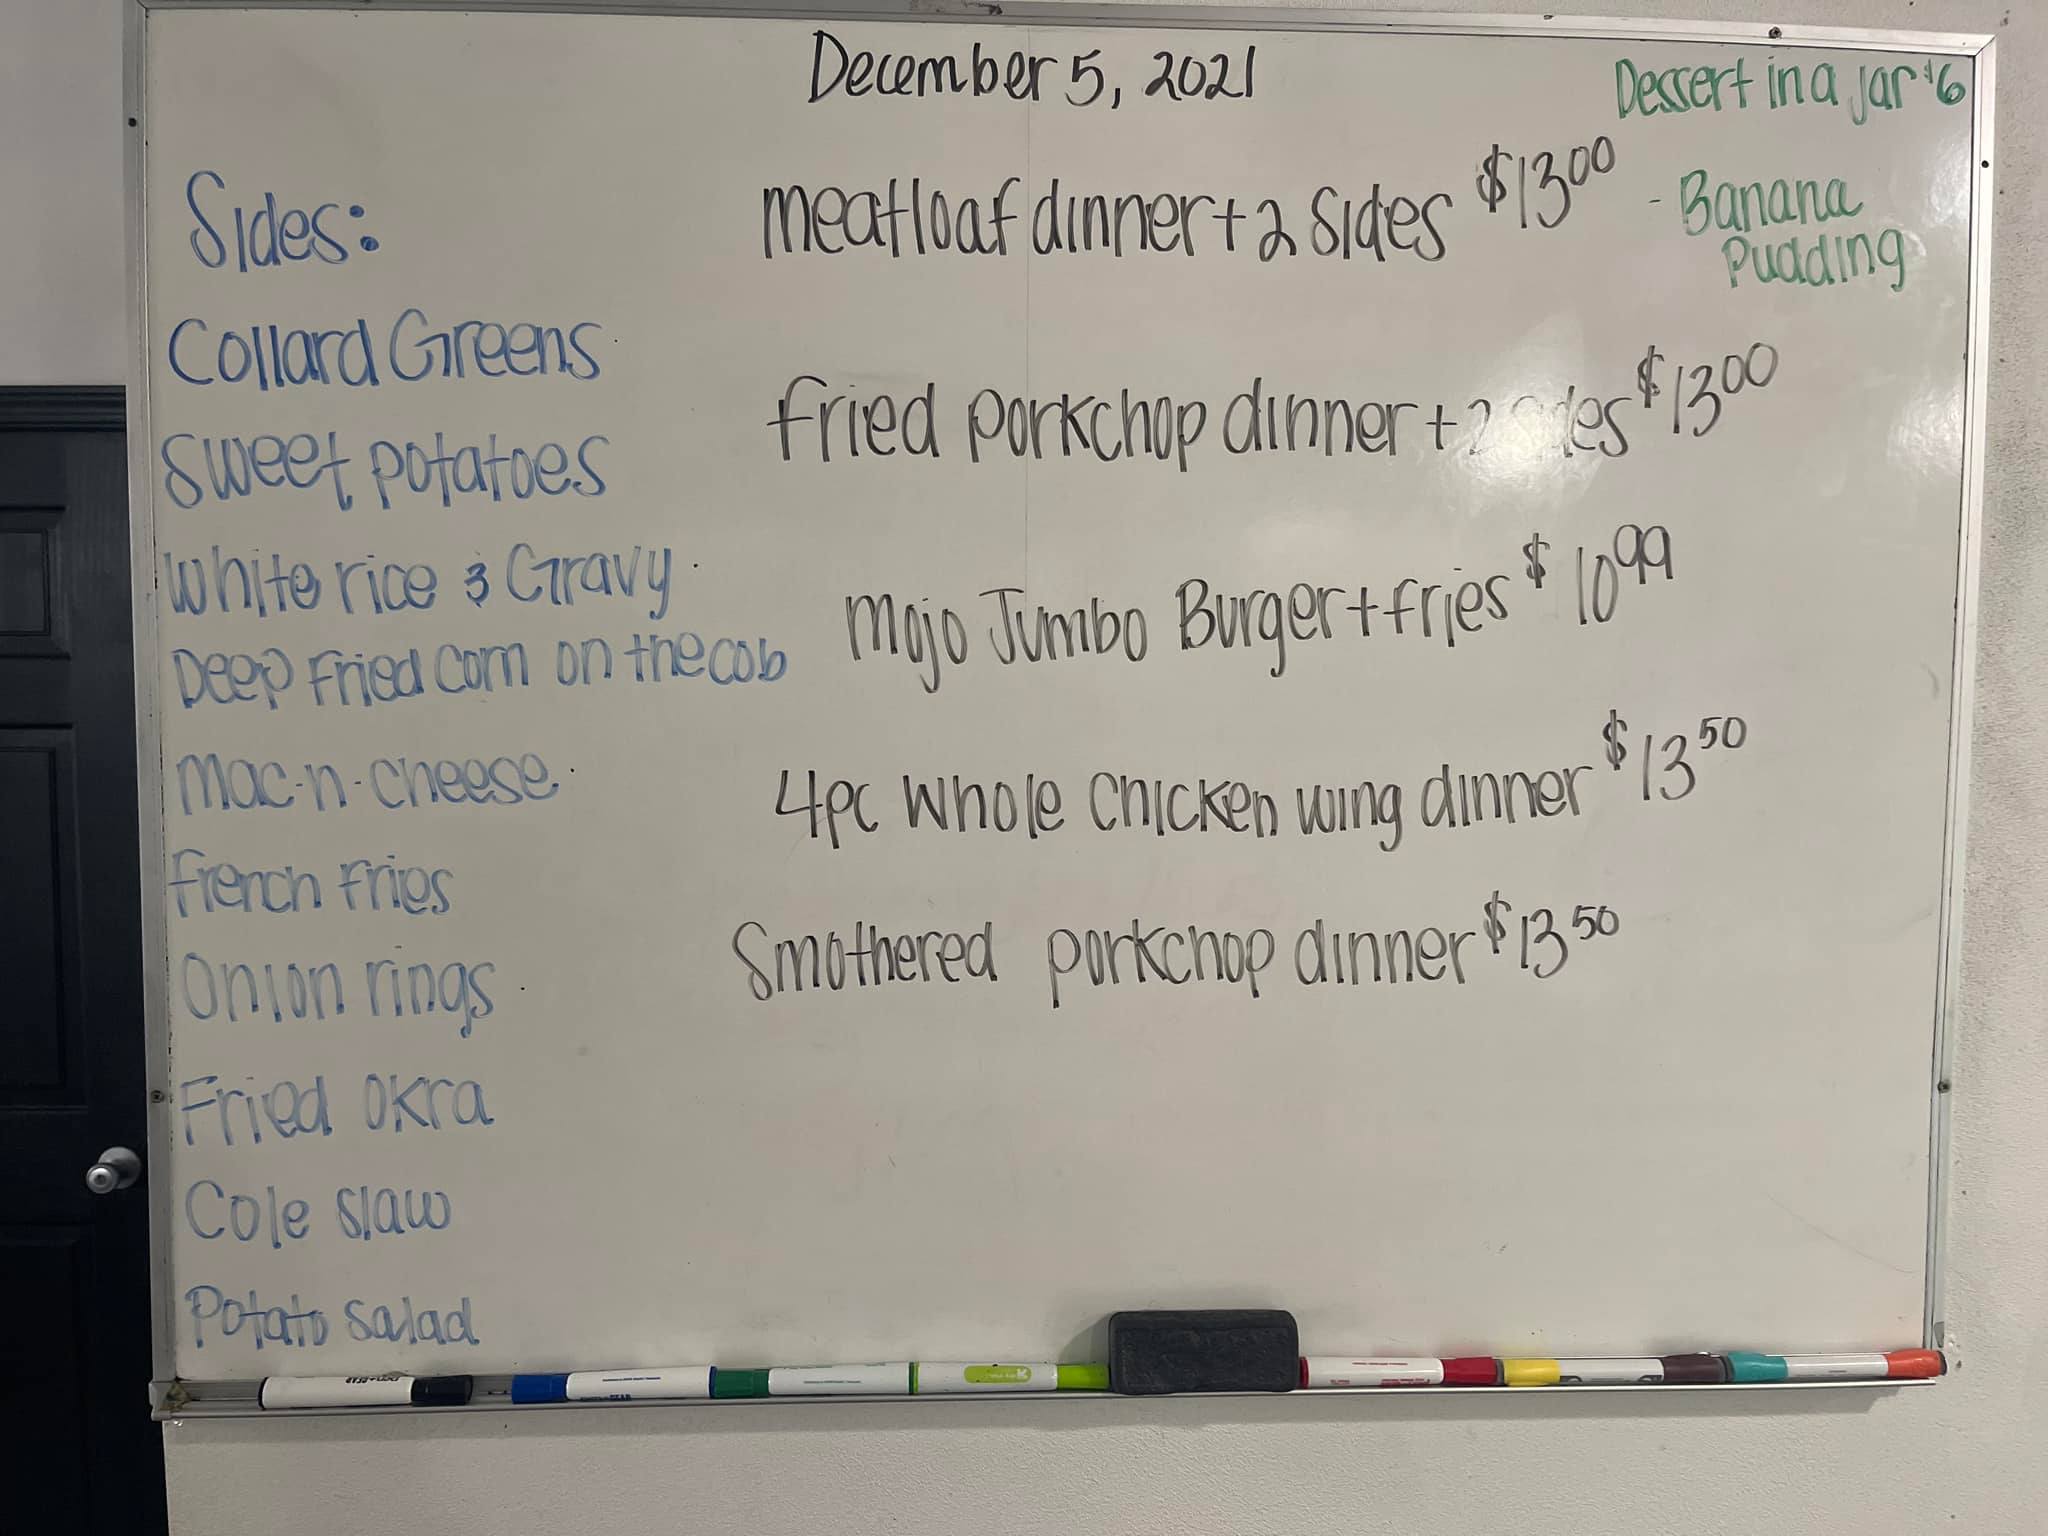 December 5, 2021
Dessert in a jar $6
- Banana
Pudding
Sides:
Collard Greens
Sweet potatoes
White rice & Gravy
Deep Fried Corn on the cob
Mac-n-cheese
French Fries
Onion rings
Fried Okra
Cole slaw
Potato Salad
Meatloaf dinner + 2 Sides $13.00
Fried porkchop dinner + 2 Sides $13.00
Mojo Jumbo Burger + fries $10.99
4pc Whole Chicken wing dinner $13.50
Smothered porkchop dinner $13.50